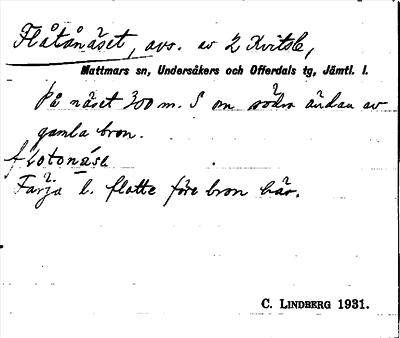 Flåtånäset, avs. av 2 Kvitsle,
Mattmars sn, Undersåkers och Offerdals tg, Jämtl. l.
På näset 300 m. S om södra ändan av
gamla bron.
flotonäse
Färja l. flotte före bron här.
C. LINDBERG 1931.